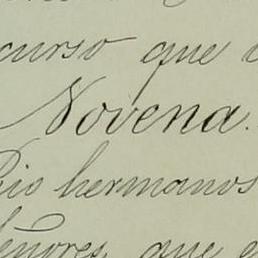 curso que
Novena.
Rio hermanos
Señores, que